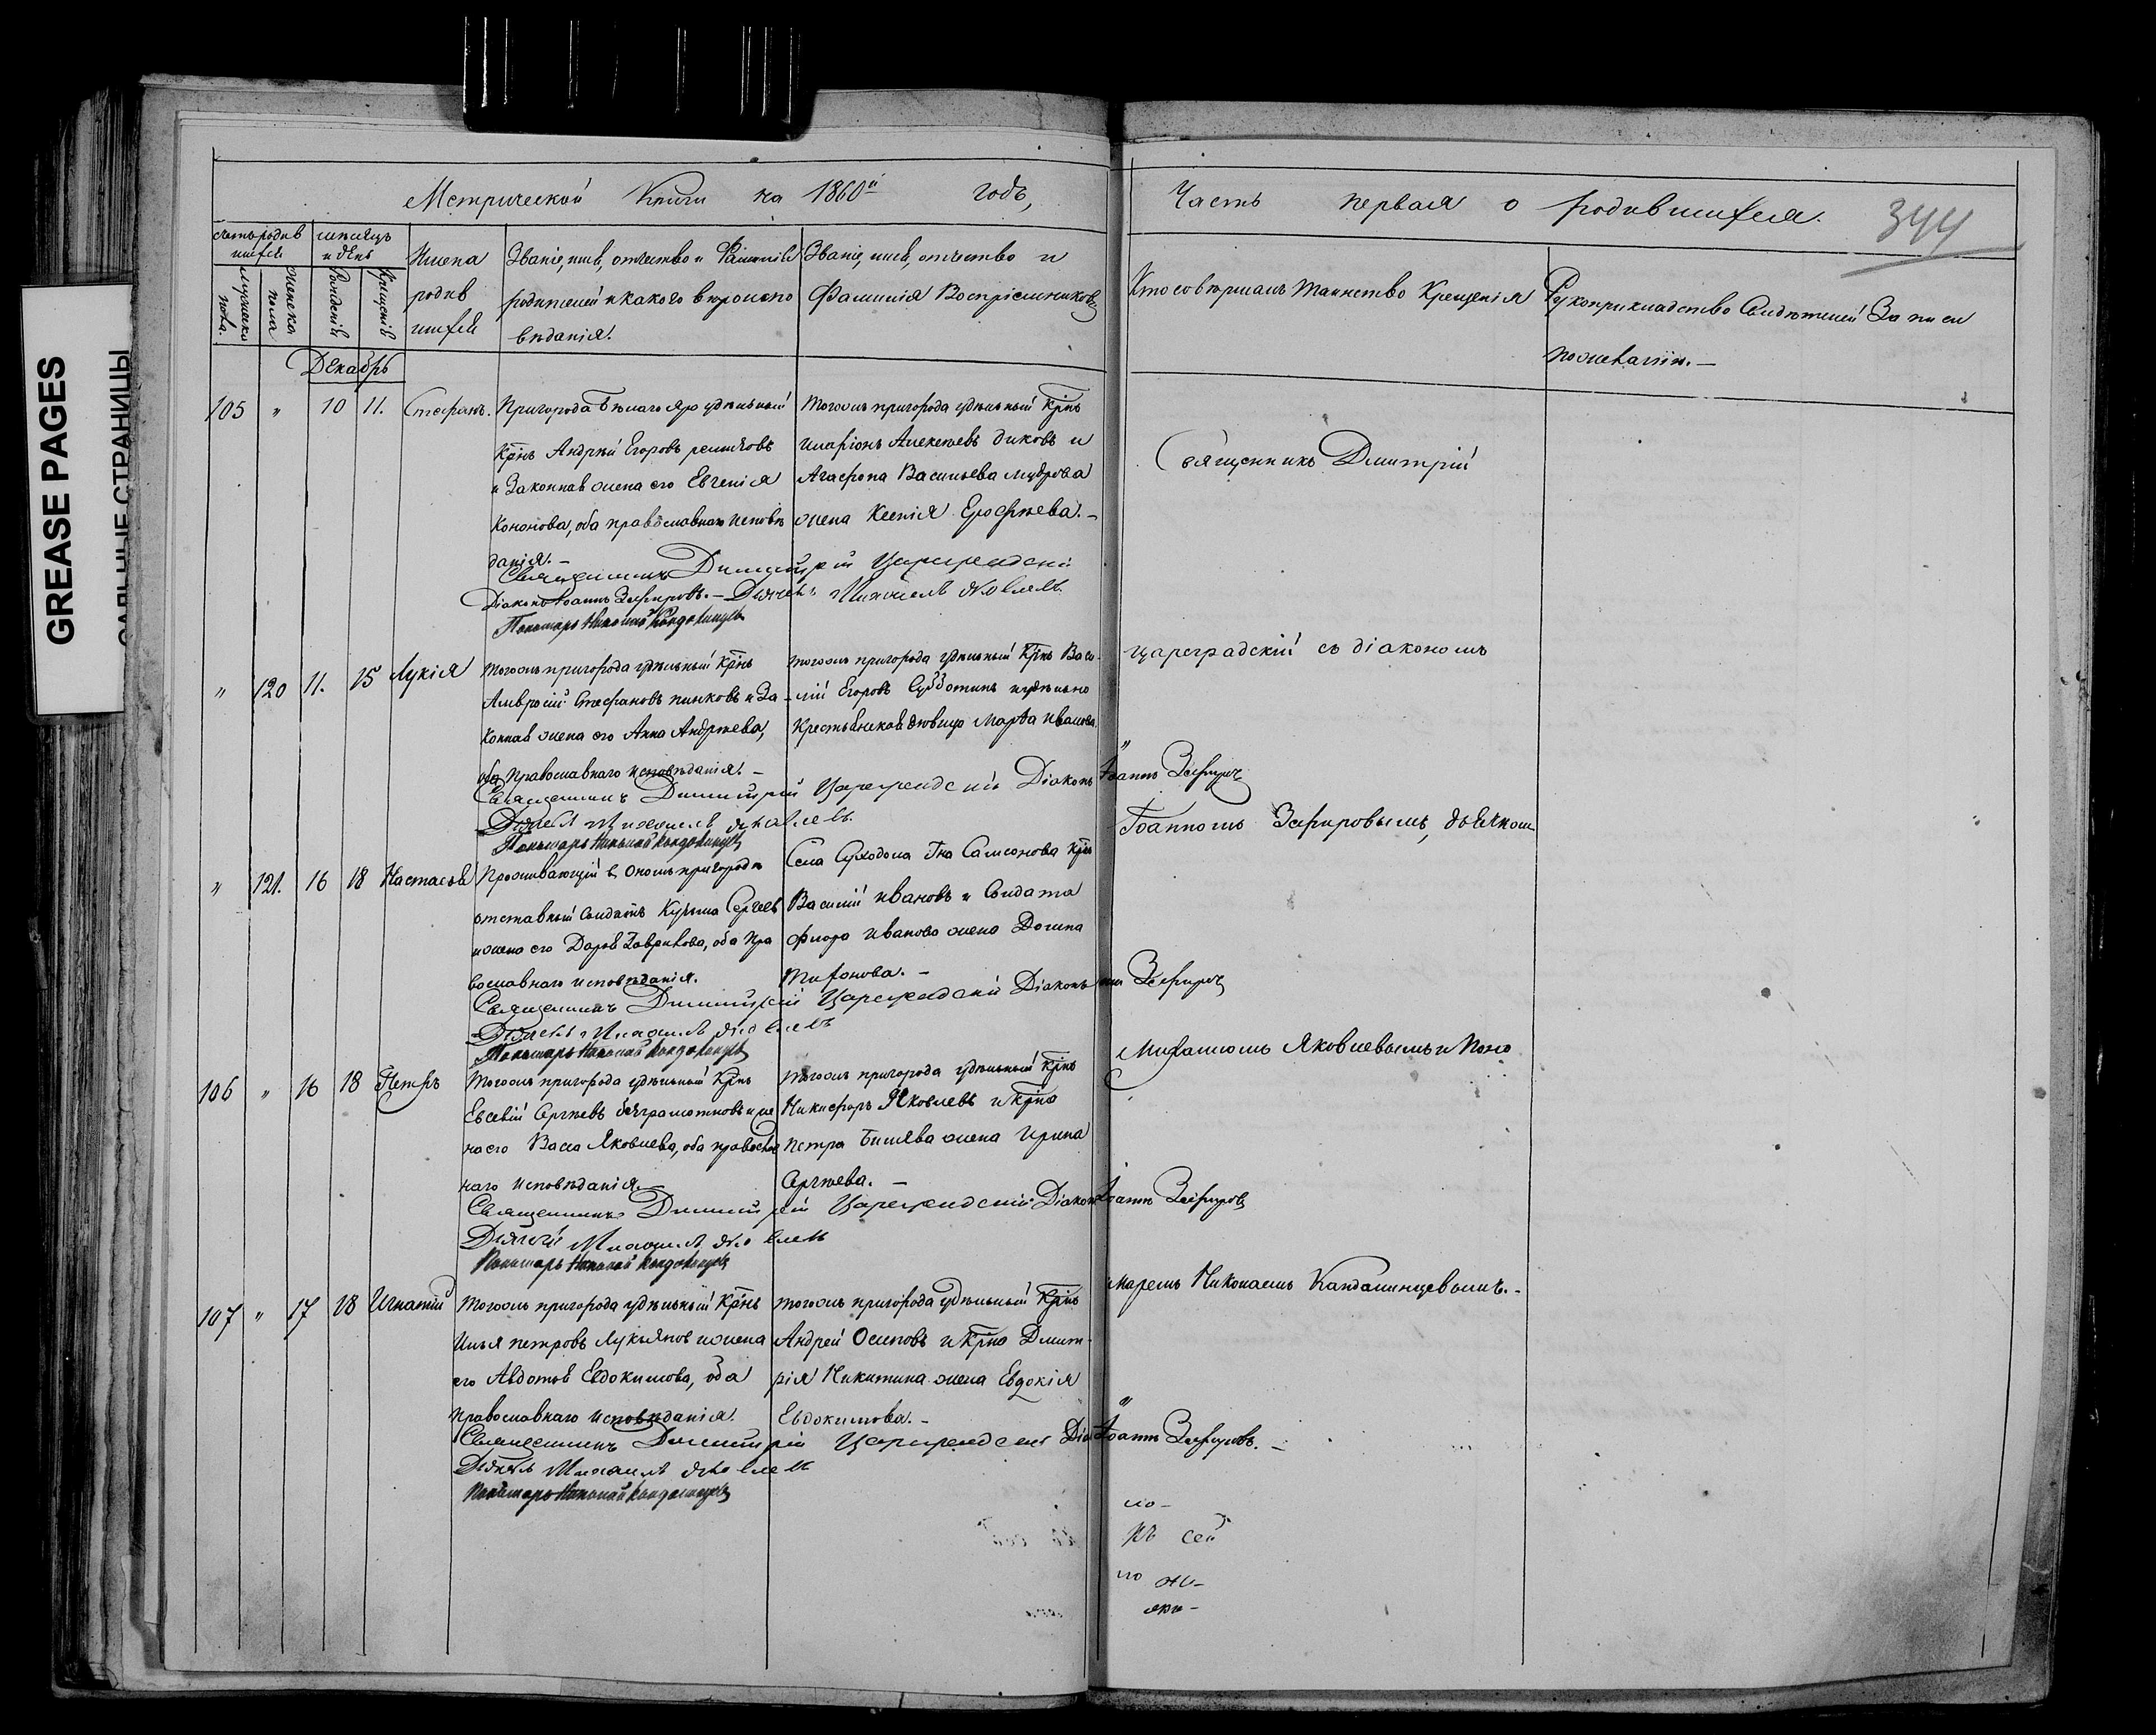 GREASE PAGES
САЛЬНЫЕ СТРАНИЦЫ
Метрической Книги на 1860й годъ,
Часть первая о родившихся.
344
счетъ родив
шихся
мужеска
пола.
женска
пола
мѣсяцъ
и день
Рожденія
Крещенія
Имена
родив
шихся
Званіе, имя, отчество и Фамилія
родителей и какого вѣроиспо
вѣданія.
Званіе, имя, отчество и
Фамилія Воспріемниковъ
Кто совершалъ таинство Крещенія
Рукоприкладство Свидѣтелей Записи
по желанію.
Декабрь
105 " 10 11. Стефанъ.
Пригорода Бѣлаго яра удѣльный
Крнъ Андрей Егоровъ
и Законная жена его Евгенія
Кононова, оба православнаго исповѣ
данія.
Тогожъ пригорода удѣльный Крнъ
Иларіонъ Алексѣевъ Диковъ и
Агафона Васильева Мудрова
жена Ксенія Ерофѣева.
Священникъ Димитрій Цареградскій
Діаконъ Іоаннъ Зефировъ. Дьячекъ Михаилъ Яковлевъ
Пономарь Николай Кандалинцевъ
Священникъ Дмитрій
" 120 11. 15 Лукія
Тогожъ пригорода удѣльный Крнъ
Амвросій Стефановъ Пинковъ и За
конная жена его Анна Андрѣева,
оба Православнаго исповѣданія.
Тогожъ пригорода удѣльный Крнъ Васи
лій Егоровъ Субботинъ и удѣльно
Крестьянская дѣвица Марѳа Иванова
Цареградскій съ діакономъ
Священникъ Димитрій Цареградскій Діаконъ Іоаннъ Зефировъ
Дьячекъ Михаилъ Яковлевъ
Пономарь Николай Кандалинцевъ
Іоанномъ Зефировымъ, дьячкомъ
" 121. 16 18 Настасья
Проживающій в ономъ пригородѣ
отставный Солдатъ Кузьма Сергѣевъ
и жена его Дарья Гаврилова, оба Пра
вославнаго исповѣданія.
Села Суходола Гна Самсонова Крнъ
Василій Ивановъ и Солдата
Флора Иванова жена Домна
Тихонова.
Священникъ Димитрій Цареградскій Діаконъ Іоаннъ Зефировъ
Дьячекъ Михаилъ Яковлевъ
Пономарь Николай Кандалинцевъ
Михаиломъ Яковлевымъ и Поно
106 " 16 18 Петръ
Тогожъ пригорода удѣльный Крнъ
Евсевій Сергѣевъ Безграмотновъ и же
на его Васса Яковлева, оба православ
наго исповѣданія.
Тогожъ пригорода удѣльный Крнъ
Никифоръ Яковлевъ и Крна
Петра жена Ирина
Сергѣева.
Священникъ Димитрій Цареградскій Діаконъ Іоаннъ Зефировъ
Дьячекъ Михаилъ Яковлевъ
Пономарь Николай Кандалинцевъ
маремъ Николаемъ Кандалинцевымъ.
107 " 17 18 Игнатій
Тогожъ пригорода удѣльный Крнъ
Илья Петровъ Лукьяновъ и жена
его Авдотья Евдокимова, оба
Православнаго исповѣданія.
Тогожъ пригорода удѣльный Крнъ
Андрей Осиповъ и Крна Дмит
рія Никитина жена Евдокія
Евдокимова.
Священникъ Димитрій Цареградскій Діа Іоаннъ Зефировъ.
Дьячекъ Михаилъ Яковлевъ
Пономарь Николай Кандалинцевъ
къ сей